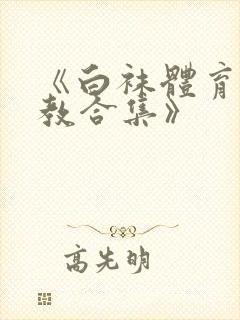 《白袜體育
教合集》
高先明